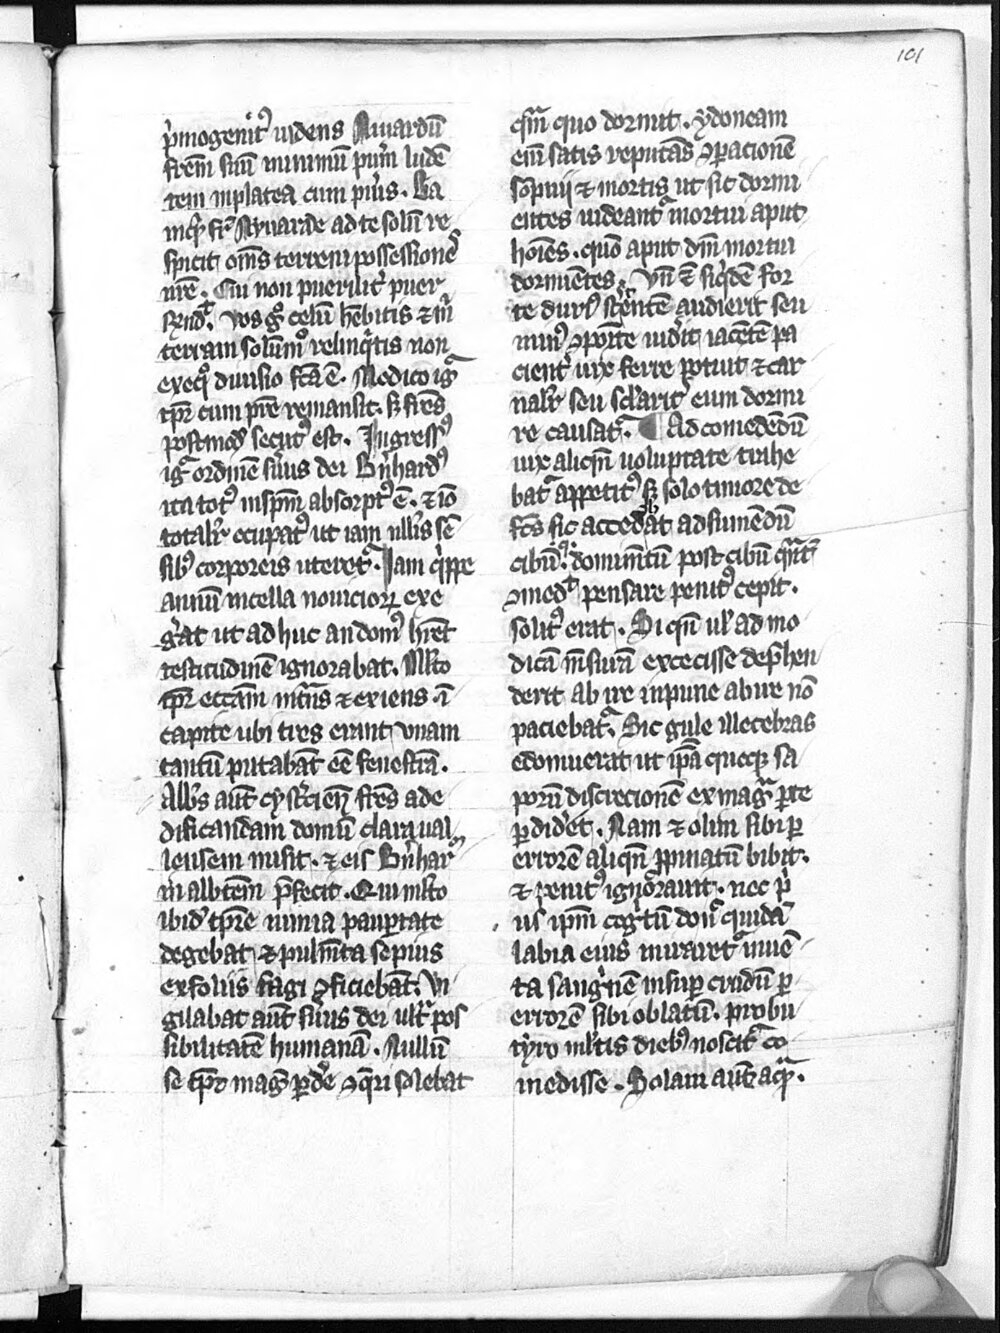 101
p̉mogenit᷒ uidens Niuardū
frēm suū minimū puerū luden
tem in platea cum pueris . Eia
inq̉t fr̄ Nyuarde ad te solū re
spicit om̄s terreni possessionē
nr̄e . Cui non pueriliter puer
rn̄dit . Vos g̊ celū habebitis ⁊ m̉
terram solūmo relinq̉tis non
ex equo diuisio fc̄a ē . Modico igr̄
tp̄r cum pr̄e remansit . sꝫ frēs
postmod̄ secut᷒ est . Ingress᷒
igr̄ ordinē seruus dei Bn̄hard᷒
ita tot᷒ in spm̄ absorpt᷒ ē . ⁊ iō
totalr̄ occupat᷒ ut iam nll̄is sē
sib᷒ corporeis uteret̄ . Iam q̉ppe
annū in cella nouicioꝝ exe
gerat ut adhuc an dom᷒ hr̄et
testitudinē ignorabat . Mlto
tp̄r ecc̄am int̄ns ⁊ exiens . ī
capite ubi tres erant vnam
tantū putabat eē fenestrā .
Abbs aūt cysterciēn̄ frēs ad e
dificandam domū clareual
lensem misit . ⁊ eis Bn̄har
dū abbtēm p̄fecit . Qui mlto
ibid̄ tp̄re nimia paup̄tate
degebat ⁊ pulm̄ta sepius
ex foliis fagi ꝯficiebat . Vi
gilabat aūt seruus dei ultr̄ pos
sibilitatē humanā . Nullū
se tp̄s mag̉ p̱de ꝯq̄ri solebat
qm̄ quo dormit . ydoneam
eni satis reputās ꝯparacionē
sopnii ⁊ mortis ut sic dormi
entes uideant̄ mortui aput
hoīes . quō aput dm̄ mortui
dormientes . Vn̄ ⁊ siq̉dē for
te duri᷒ stertentē audierit seu
min᷒ ꝯposite uidit iacētē pa
cienter uix ferre potuit ⁊ car
nalr̄ seu seclarit̄ eum dormi
re causat̄ . Ad comedēdū
uix aliqn̄ uoluptate trahe
bat̄ appetit᷒ sꝫ solo timore de
fc̄s sic accedebat ad sumēdū
cibū᷒ . domintū post cibū qn̄t̄
ꝯmed̄t pensare penit᷒ cepit .
solit᷒ erat . Si qn̄ ul̄ ad mo
dicā m̄surā excecisse dep̄hen
derit abire inpune abire nō
paciebat̄ . Sic gule illecebras
edomuerat ut ip̄ā quoqꝫ sa
porū discrecionē ex mag̉ p̱te
p̱did̉et . Nam ⁊ olim sibi p̱
errorē aliqn̄ ppinatū bibit .
⁊ penit᷒ ignorauit . nec p̉
us ip̄m cog̉tū don̄ quidā
labia eius miraret̄ inuē
ta sang̉nē insup̱ crudū p̱
errorē sibi oblatū . probu
tyro mltis dieb᷒ noscit̄ co
medisse . Solam aūt aqꝫ .